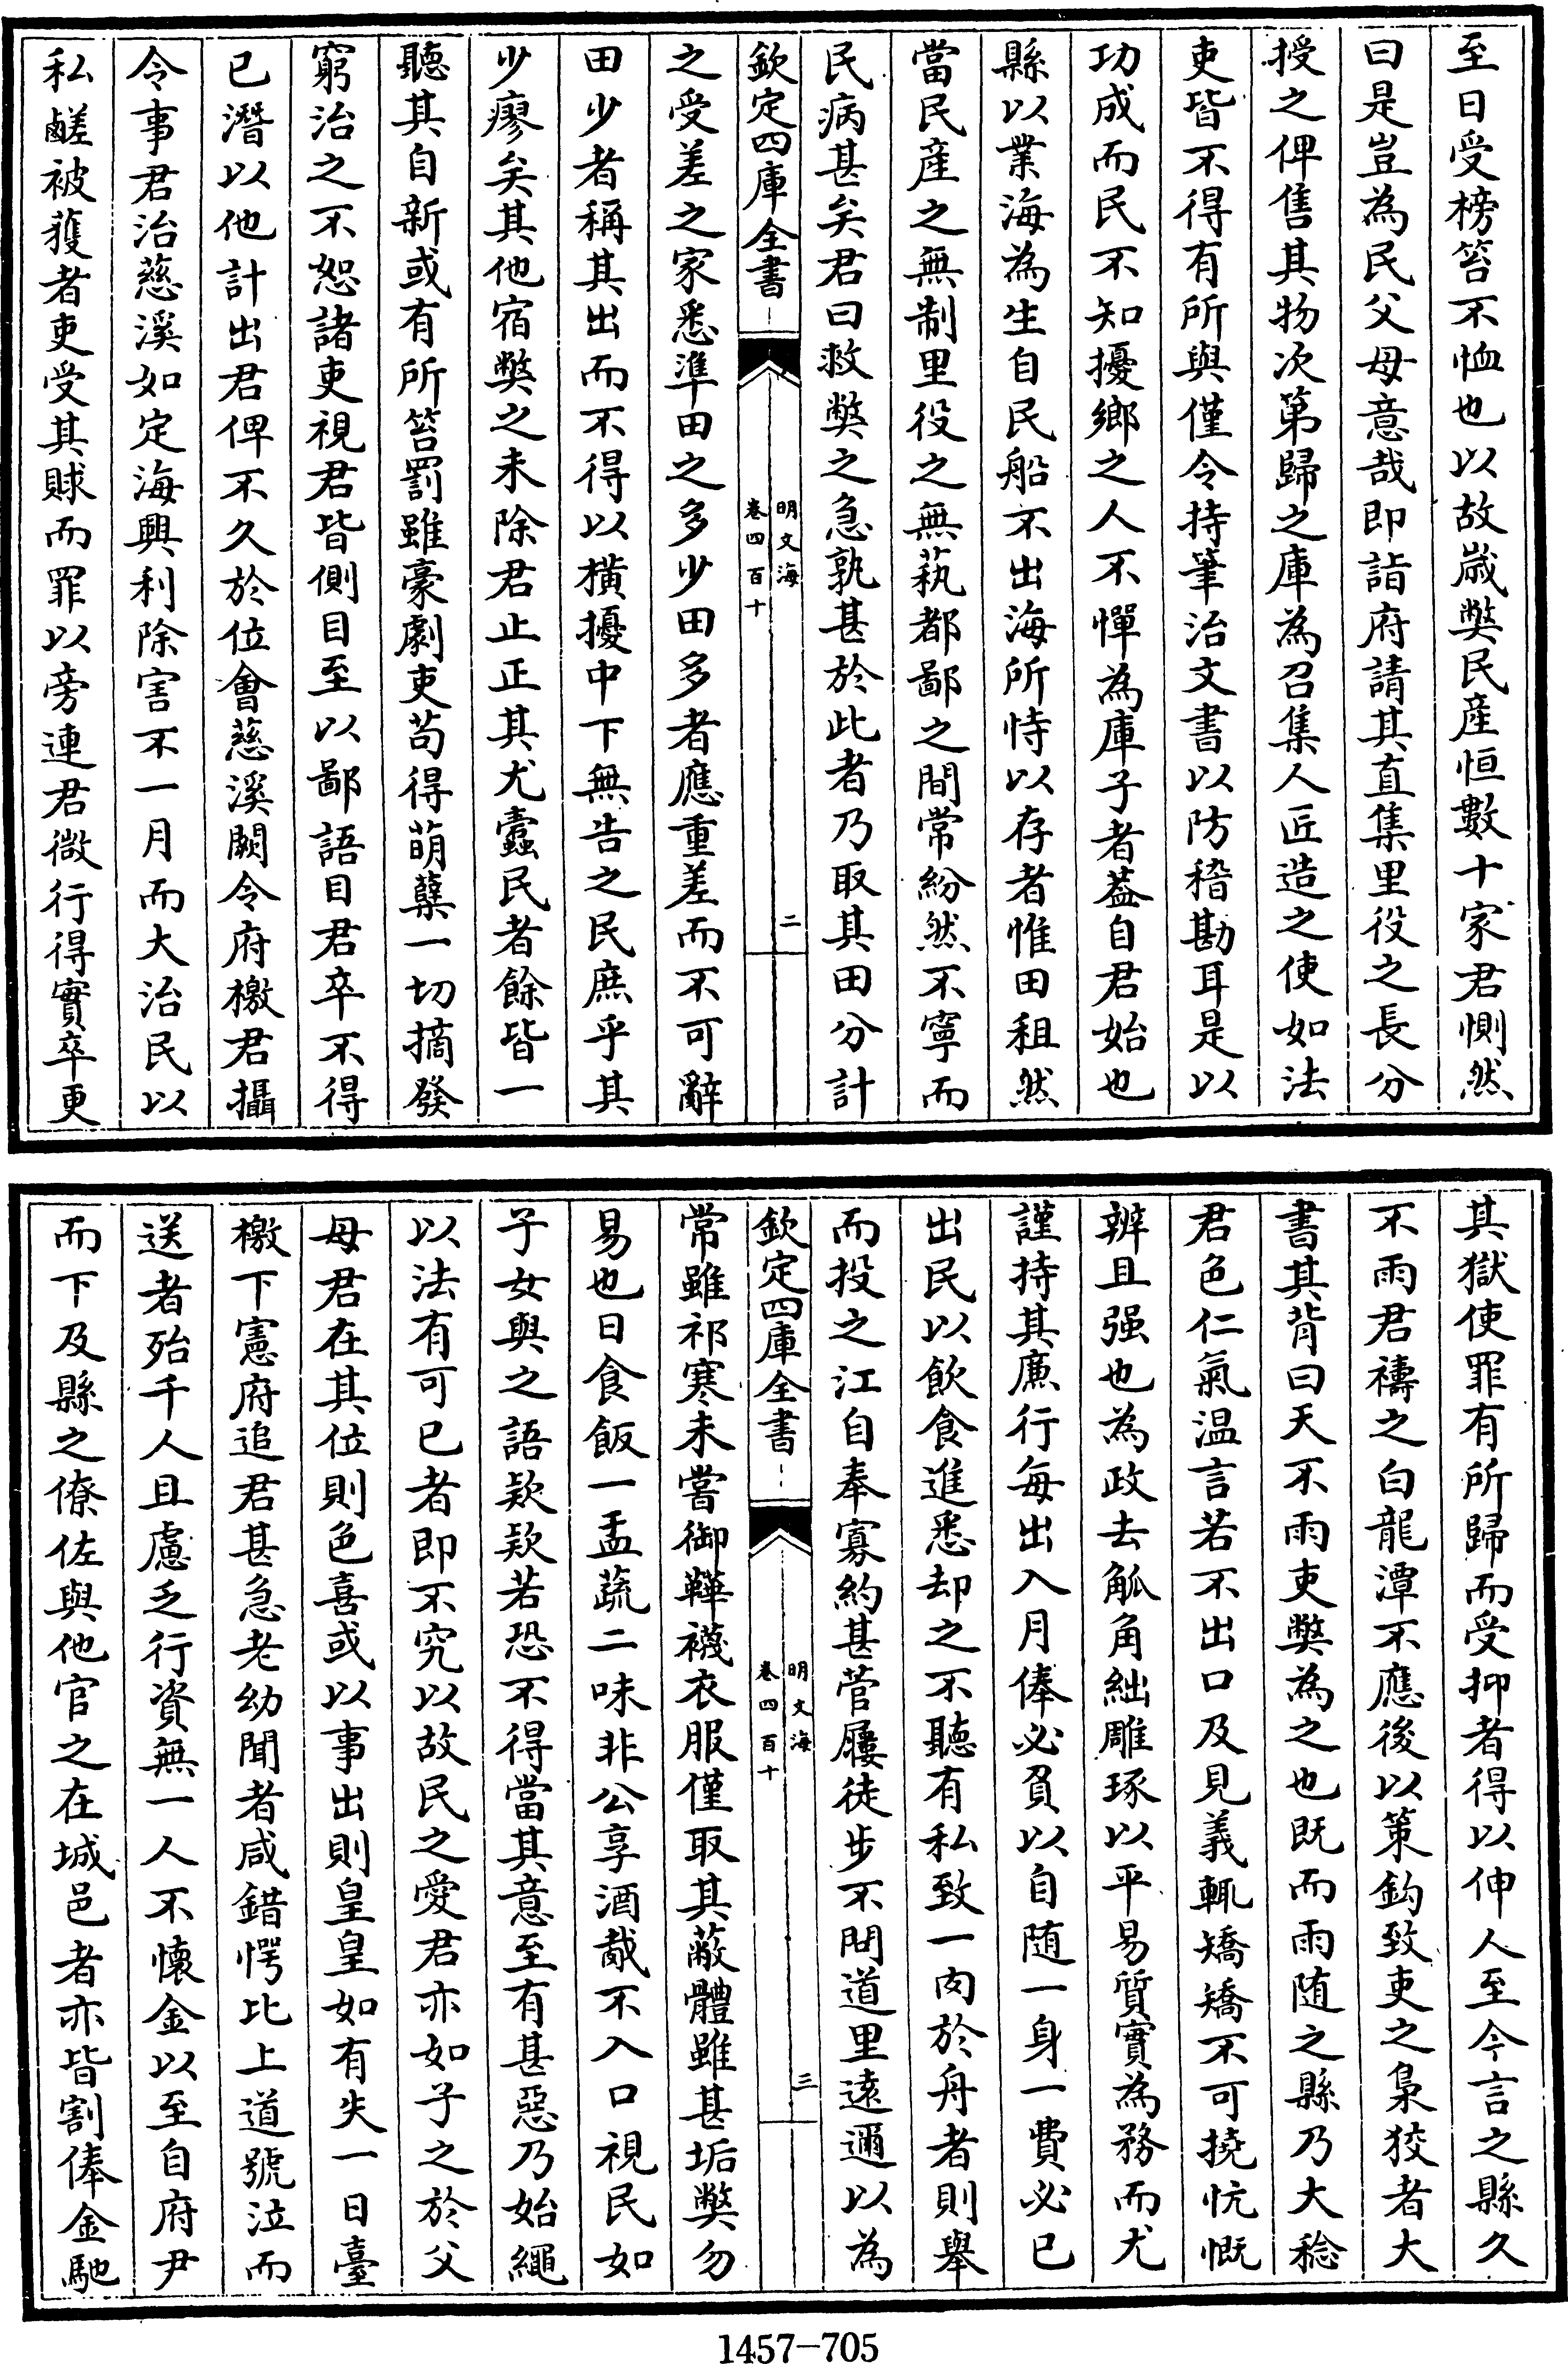 至日受榜笞不恤也以故嵗弊民産恒數十家君惻然
曰是豈為民父母意哉即詣府請其直集里役之長分
授之俾售其物次第歸之庫為召集人匠造之使如法
吏皆不得有所與僅令持筆治文書以防稽勘耳是以
功成而民不知擾鄉之人不憚為庫子者葢自君始也
縣以業海為生自民船不出海所恃以存者惟田租然
當民産之無制里役之無蓺都鄙之間常紛然不寧而
民病甚矣君曰救弊之急孰甚於此者乃取其田分計
欽定四庫全書
明文海
卷四百十
二
之受差之家悉準田之多少田多者應重差而不可辭
田少者稱其出而不得以横擾中下無告之民庶乎其
少瘳矣其他宿弊之未除君止正其尤蠧民者餘皆一
聽其自新或有所笞罰雖豪劇吏茍得萌蘖一切摘發
窮治之不恕諸吏視君皆側目至以鄙語目君卒不得
已潛以他計出君俾不久於位㑹慈溪闕令府檄君攝
令事君治慈溪如定海興利除害不一月而大治民以
私鹺被獲者吏受其賕而罪以旁連君微行得實卒更
其獄使罪有所歸而受抑者得以伸人至今言之縣久
不雨君禱之白龍潭不應後以策鈎致吏之梟狡者大
書其背曰天不雨吏弊為之也既而雨随之縣乃大稔
君色仁氣温言若不出口及見義輒矯矯不可撓忼慨
辨且强也為政去觚角絀雕琢以平易質實為務而尤
謹持其亷行每出入月俸必負以自随一身一費必已
出民以飲食進悉却之不聽有私致一肉於舟者則舉
而投之江自奉寡約甚菅屨徒歩不問道里遠邇以為
欽定四庫全書
明文海
卷四百十
三
常雖祁寒未嘗御鞾襪衣服僅取其蔽體雖甚垢弊勿
易也日食飯一盂蔬二味非公享酒胾不入口視民如
子女與之語欵欵若恐不得當其意至有甚惡乃始繩
以法有可已者即不究以故民之愛君亦如子之於父
母君在其位則色喜或以事出則皇皇如有失一日臺
檄下憲府追君甚急老幼聞者咸錯愕比上道號泣而
送者殆千人且慮乏行資無一人不懐金以至自府尹
而下及縣之僚佐與他官之在城邑者亦皆割俸金馳
1457-705